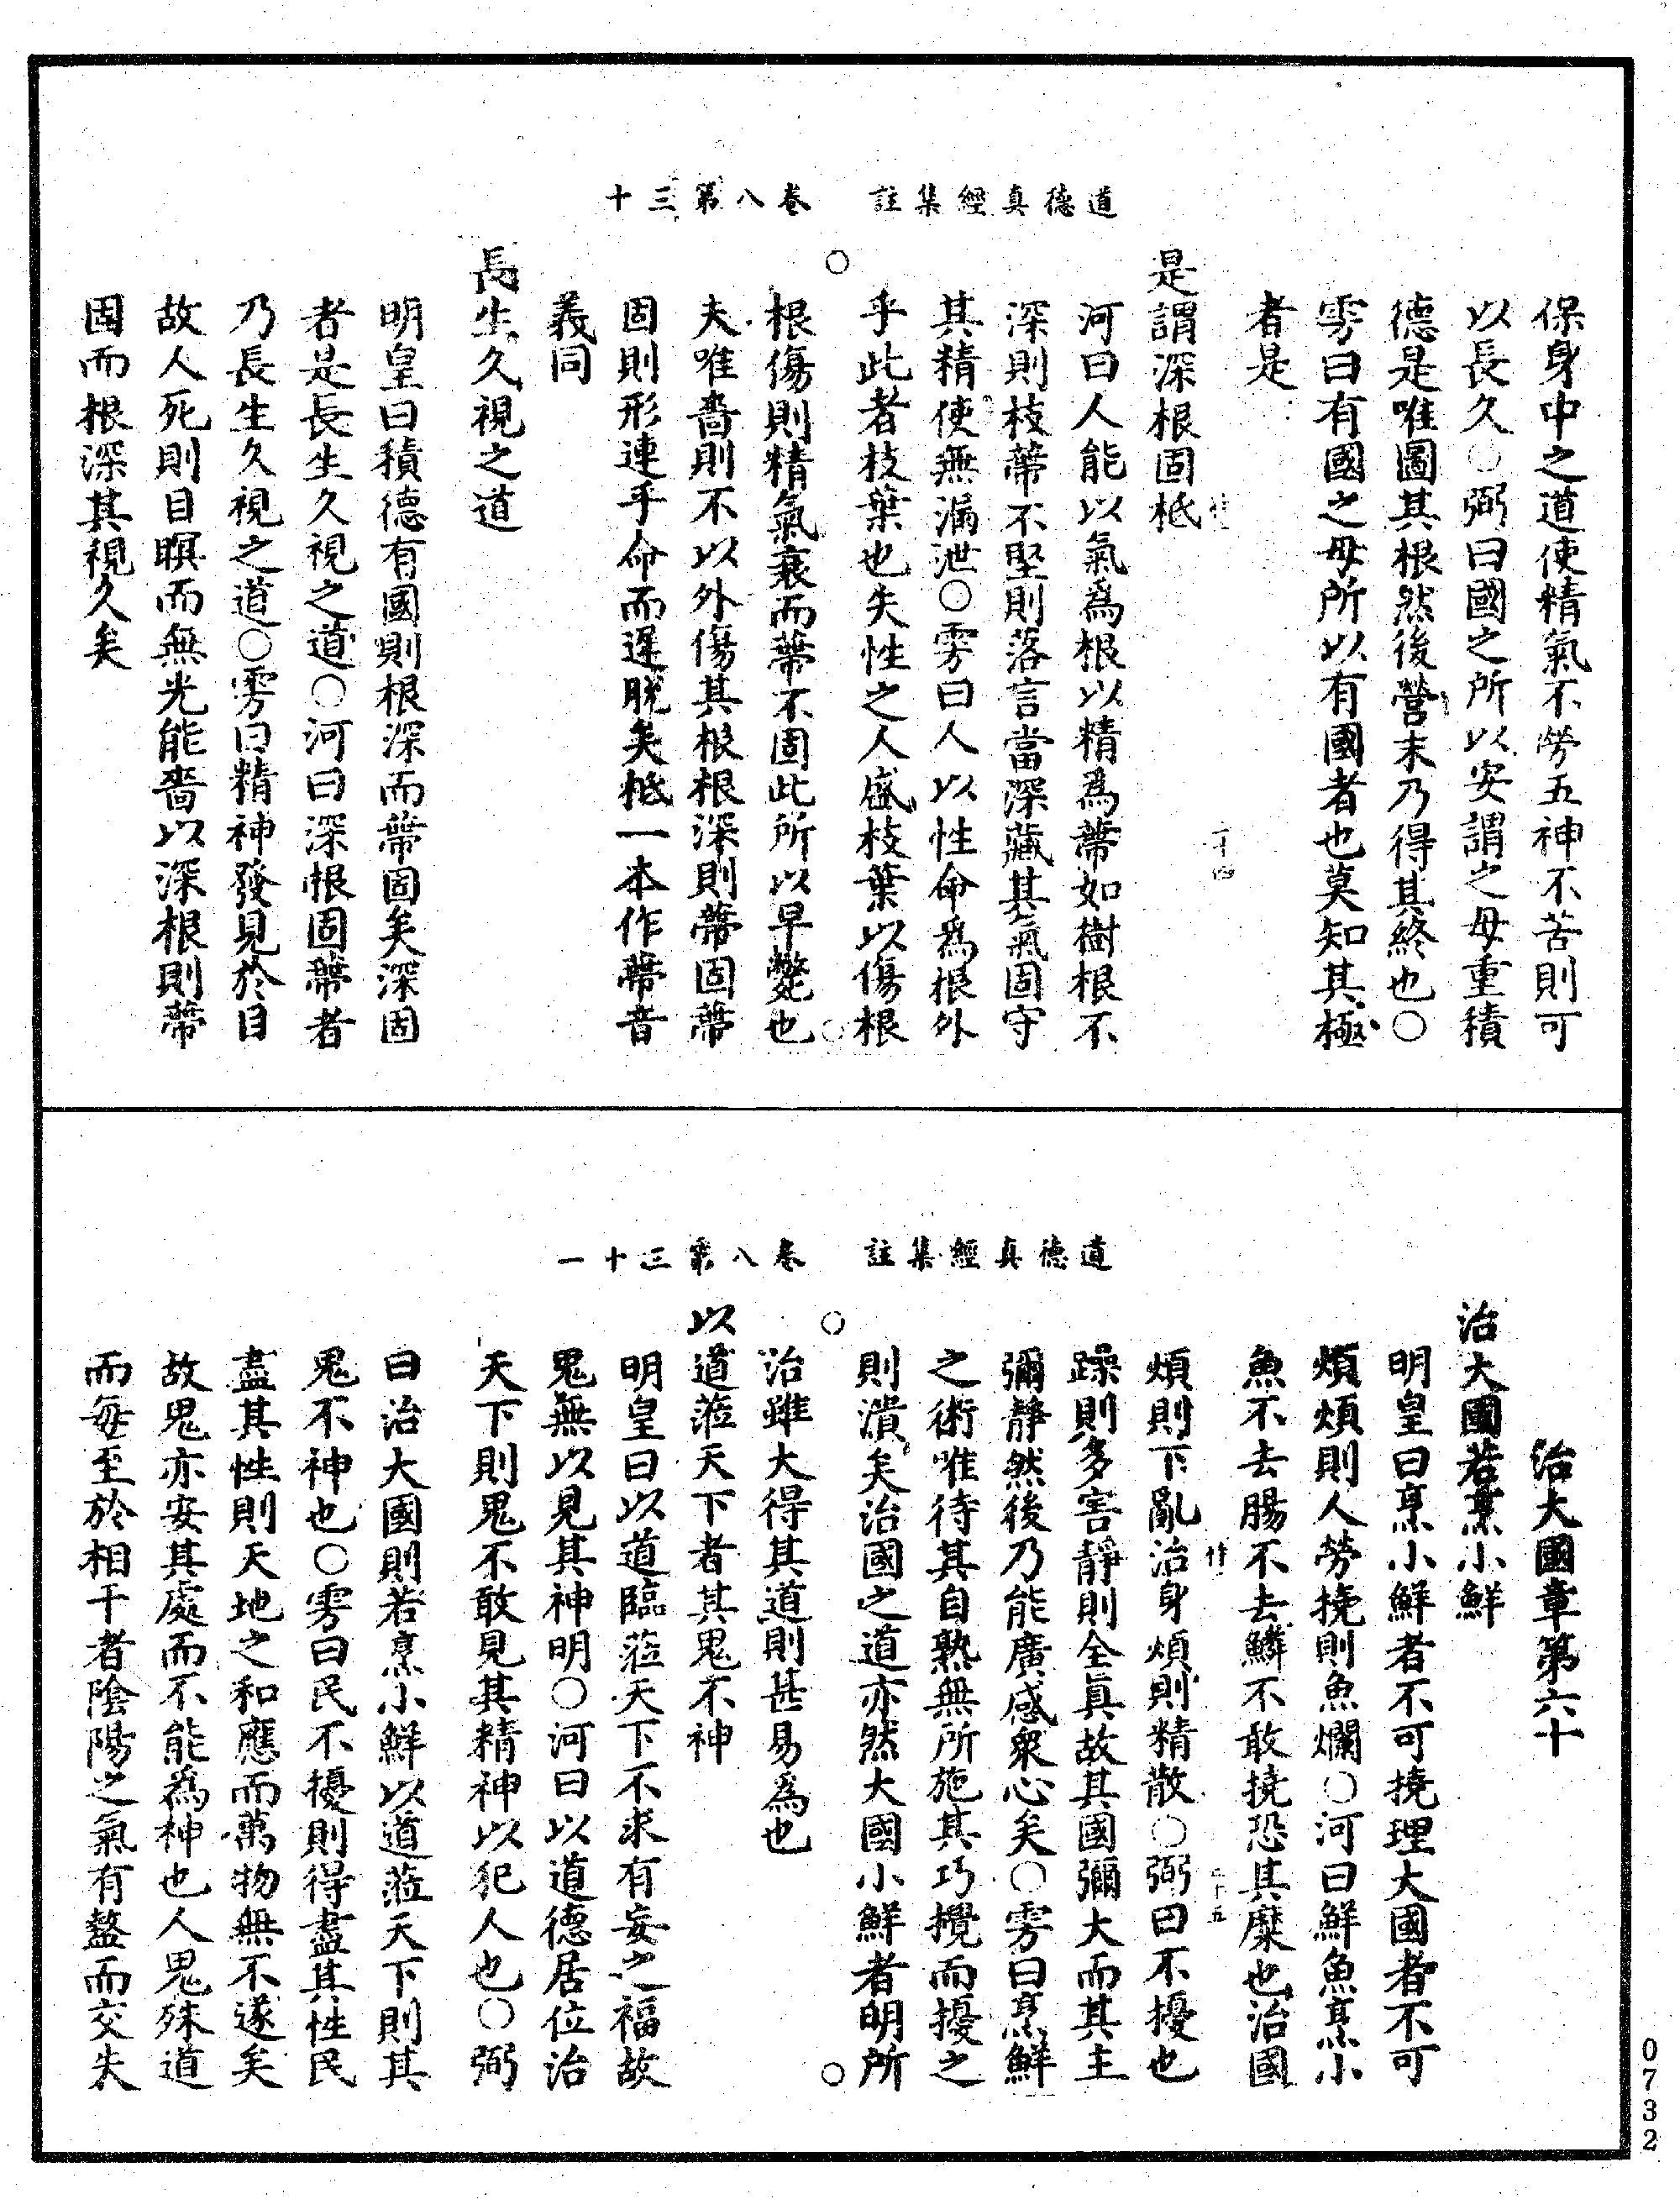 道德真經集註 卷八第三十
保身中之道使精氣不勞五神不苦則可
以長久○弼曰國之所以安謂之母重積
德是唯圖其根然後營末乃得其終也○
雱曰有國之母所以有國者也莫知其極
者是
是謂深根固柢
河曰人能以氣為根以精為蔕如樹根不
深則枝蔕不堅則落言當深藏其氣固守
其精使無漏泄○雱曰人以性命為根外
乎此者枝葉也失性之人盛枝葉以傷根
根傷則精氣衰而蔕不固此所以早斃也
夫唯嗇則不以外傷其根根深則蔕固蔕
固則形連乎命而遲脫矣柢一本作蔕音
義同
長生久視之道
明皇曰積德有國則根深而蔕固矣深固
者是長生久視之道○河曰深根固蔕者
乃長生久視之道○雱曰精神發見於目
故人死則目瞑而無光能嗇以深根則蔕
固而根深其視久矣
道德真經集註 卷八第三十一
治大國章第六十
治大國若烹小鮮
明皇曰烹小鮮者不可撓理大國者不可
煩煩則人勞撓則魚爛○河曰鮮魚烹小
魚不去腸不去鱗不敢撓恐其糜也治國
煩則下亂治身煩則精散○弼曰不擾也
躁則多害靜則全真故其國彌大而其主
彌靜然後乃能廣感衆心矣○雱曰烹鮮
之術唯待其自熟無所施其巧攪而擾之
則潰矣治國之道亦然大國小鮮者明所
治雖大得其道則甚易為也
以道蒞天下者其鬼不神
明皇曰以道臨蒞天下不求有妄之福故
鬼無以見其神明○河曰以道德居位治
天下則鬼不敢見其精神以犯人也○弼
曰治大國則若烹小鮮以道蒞天下則其
鬼不神也○雱曰民不擾則得盡其性民
盡其性則天地之和應而萬物無不遂矣
故鬼亦安其處而不能為神也人鬼殊道
而每至於相干者陰陽之氣有盭而交失
0732